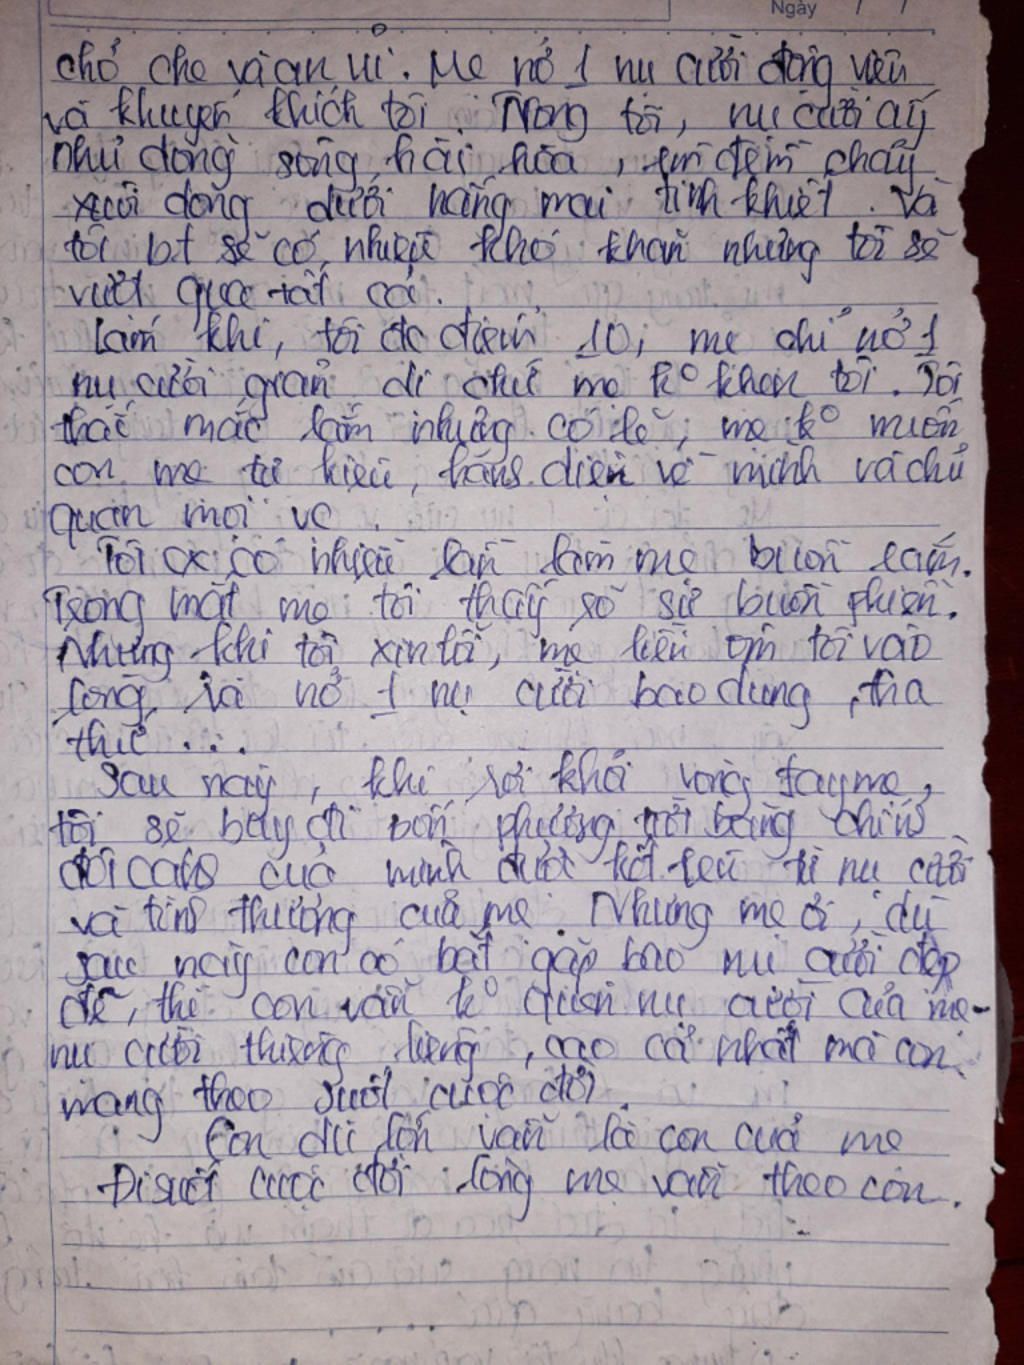 Ngày / /
chở che và an ủi. Mẹ nở 1 nụ cười động viên
và khuyến khích tôi. Trong tôi, nụ cười ấy
như dòng sông hài hòa, êm đềm chảy
xuôi dòng dưới nắng mai tinh khiết. Và
tôi bt sẽ có nhiều khó khăn nhưng tôi sẽ
vượt qua tất cả.
Lắm khi, tôi đc điểm 10, mẹ chỉ nở 1
nụ cười giản dị chứ mẹ ko khen tôi. Tôi
thắc mắc lắm nhưng có lẽ, mẹ ko muốn
con mẹ tự kiêu, hãnh diện về mình và chủ
quan mọi vc.
Tôi cx có nhiều lần làm mẹ buồn lắm.
Trong mắt mẹ tôi thấy rõ sự buồn phiền.
Nhưng khi tôi xin lỗi, mẹ liền ôm tôi vào
lòng và nở 1 nụ cười bao dung, tha
thứ...
Sau này, khi rời khỏi vòng tay mẹ,
tôi sẽ bay đi bốn phương trời bằng chính
đôi cánh của mình được kết lên từ nụ cười
và tình thương của mẹ. Nhưng mẹ ơi, dù
sau này con có bắt gặp bao nụ cười đẹp
đẽ, thì con vẫn ko quên nụ cười của mẹ-
nụ cười thiêng liêng, cao cả nhất mà con
mang theo suốt cuộc đời.
Con dù lớn vẫn là con của mẹ
Đi suốt cuộc đời lòng mẹ vẫn theo con.